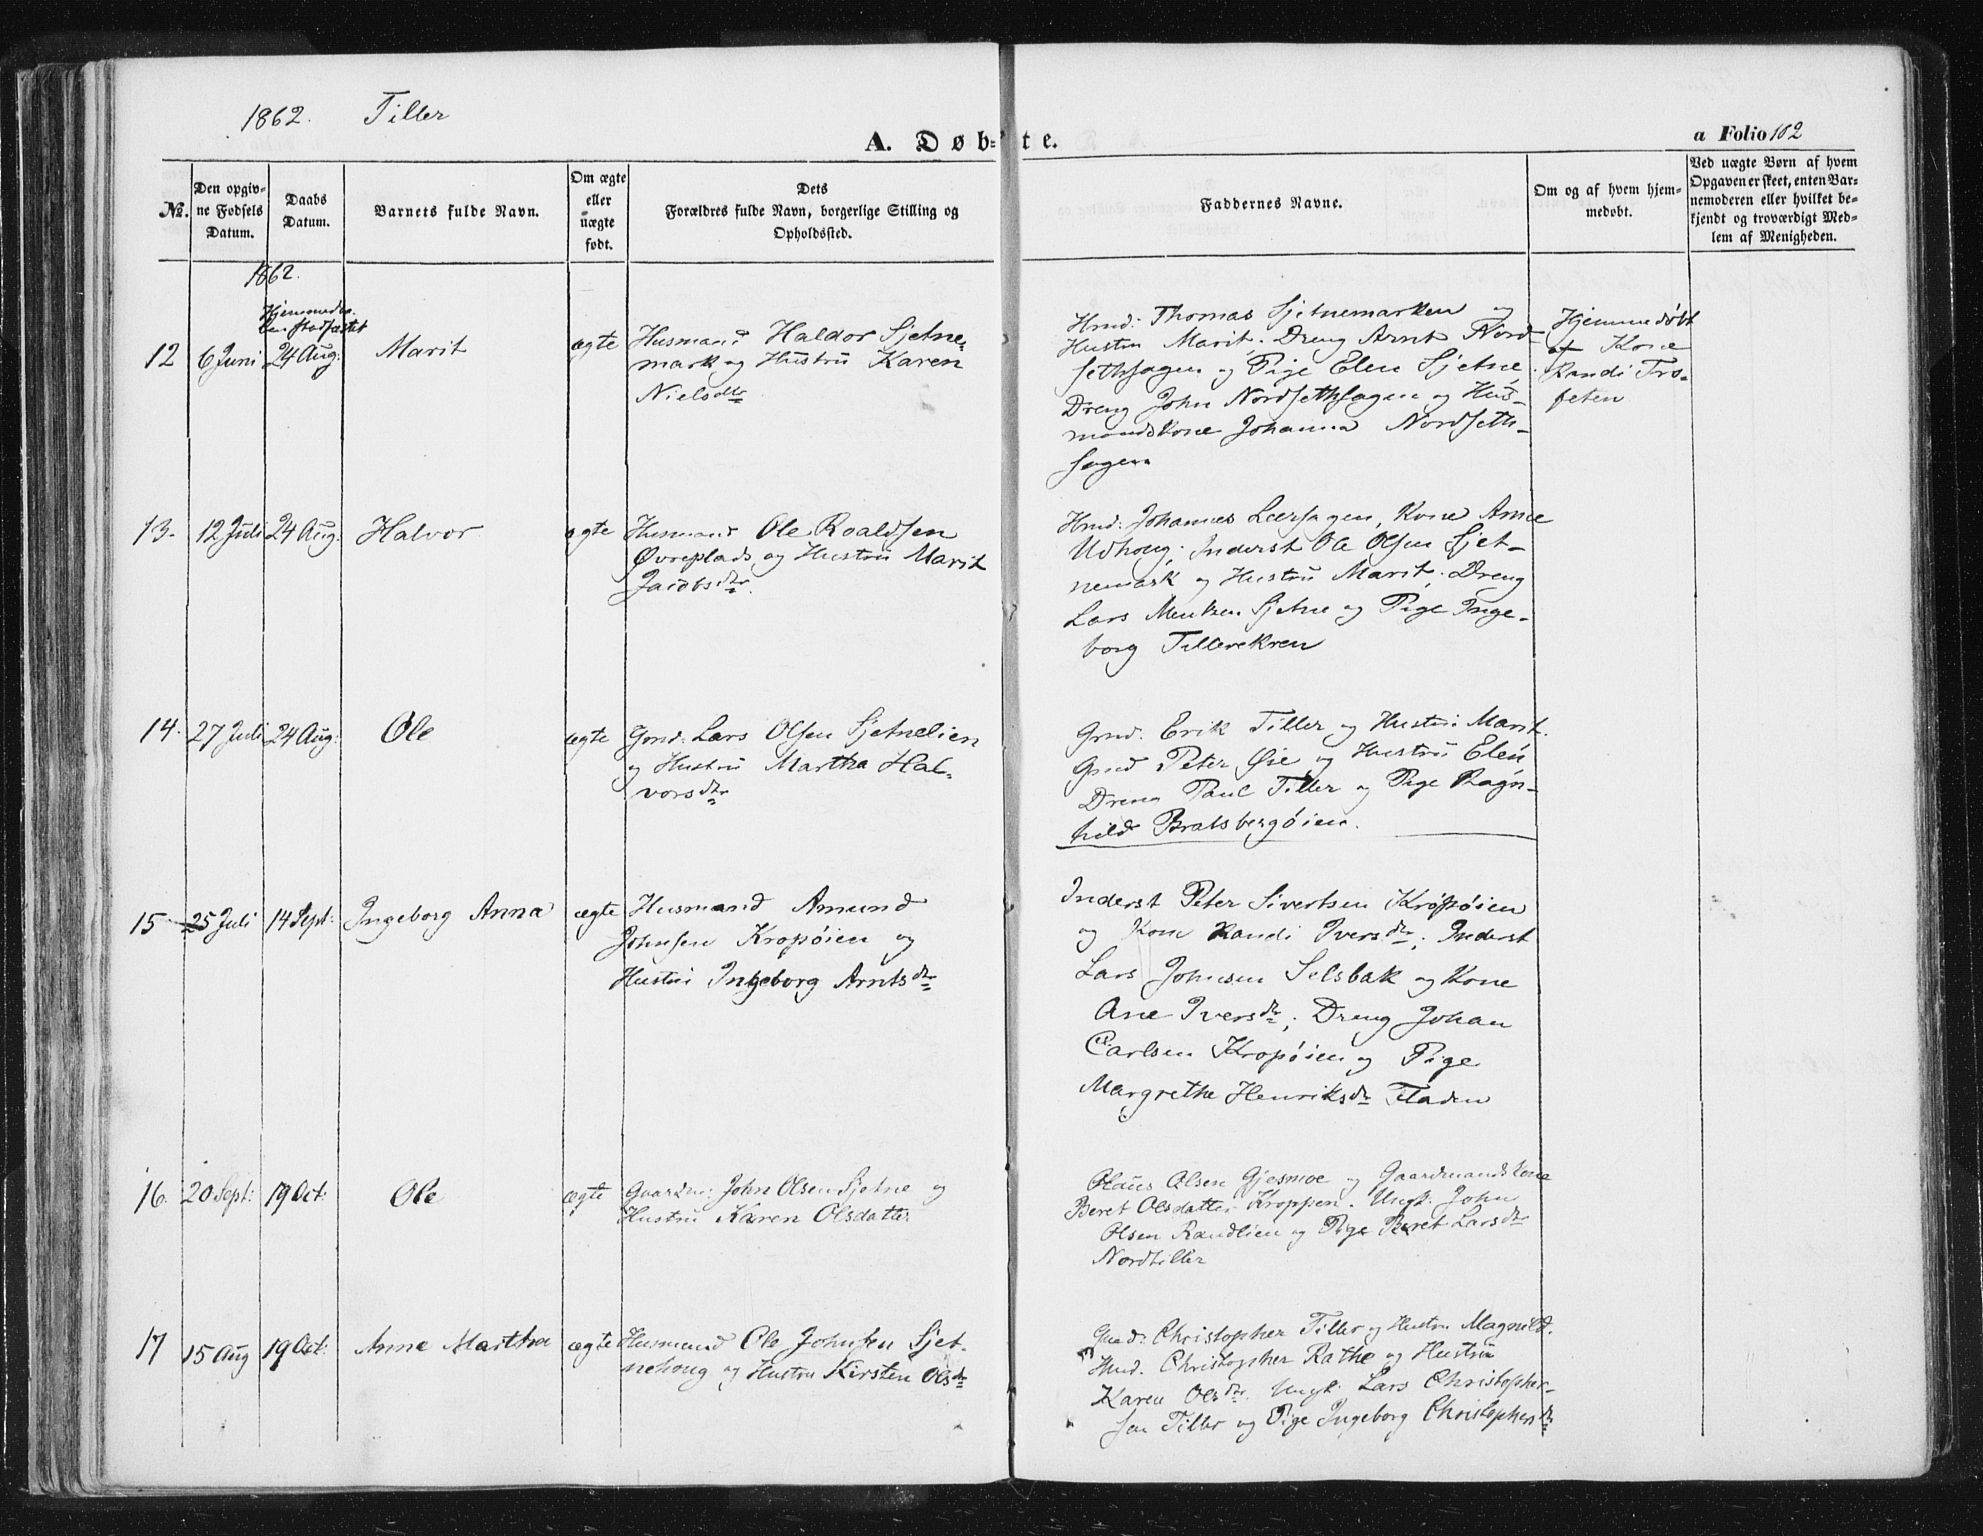 1862. Tiller
A. Døbte.
a Folio 102
No.
Den opgivne Fødsels Datum.
Daabs Datum.
Barnets fulde Navn.
Om ægte eller uægte født.
Dets Forældres fulde Navn, borgerlige Stilling og Opholdssted.
Faddernes Navne.
Om og af hvem hjemmedøbt.
Ved uægte Børn af hvem Opgaven er skeet, enten Barnemoderen eller hvilket bekjendt og troværdigt Medlem af Menigheden.
1862.
12 6 Juni
24 Aug: Marit ægte
Husmand Haldor Sjetne-
mark og Hustru Karen
Nielsdtr
Hmd: Thomas Sjetnemarken og
Hustru Marit. Dreng Arnt Nord-
sethsagen og Pige Elen Sjetne.
Dreng John Nordsethsagen og Hus-
mandskone Johanna Nordseth-
sagen
Hjemmedøbt
af Kone
Randi Tro-
feten
13. 12 Juli 24 Aug: Halvor ægte
Husmand Ole Roaldsen
Øvreplads og Hustru Marit
Jacobsdtr.
Hmd: Johannes Leersagen, Kone Anne
Udhoug; Inderst Ole Olsen Sjet-
nemark og Hustru Marit; Dreng
Lars Sjetne og Pige Inge-
borg Tillerekren
14. 27 Juli 24 Aug: Ole ægte
Gmd: Lars Olsen Sjetnelien
og Hustru Martha Hal-
vorsdtr
Gmd: Erik Tiller og Hustru Marit.
Gmd Peter Øie og Hustru Elen
Dreng Paul Tiller og Pige Ragn-
hild Bratsbergøien.
15 25 Juli 14 Sept: Ingeborg Anna ægte
Husmand Amund
Johnsen Kropøien og
Hustru Ingeborg Arntsdtr
Inderst Peter Sivertsen Kropøien
og Kone Randi Iversdtr; Inderst
Lars Johnsen Selsbak og Kone
Ane Iversdtr; Dreng Johan
Carlsen Kropøien og Pige
Margrethe Henriksdtr Fladen
16. 20 Sept: 19 Oct: Ole ægte
Gaardm: John Olsen Sjetne og
Hustru Karen Olsdatter
Claus Olsen Gjesmoe og Gaardmandskone
Beret Olsdatter Kroppen. Ungk. John
Olsen Randlien og Pige Beret Larsdtr
Nordtiller
17 15 Aug 19 Oct: Anne Martha ægte
Husmand Ole Johnsen Sjet-
nehoug og Hustru Kirsten Olsdtr
Gmd: Christopher Tiller og Hustru Magnild.
Hmd. Christopher Rathe og Hustru
Karen Olsdtr. Ungk. Lars Christopher-
sen Tiller og Pige Ingeborg Christophersdtr